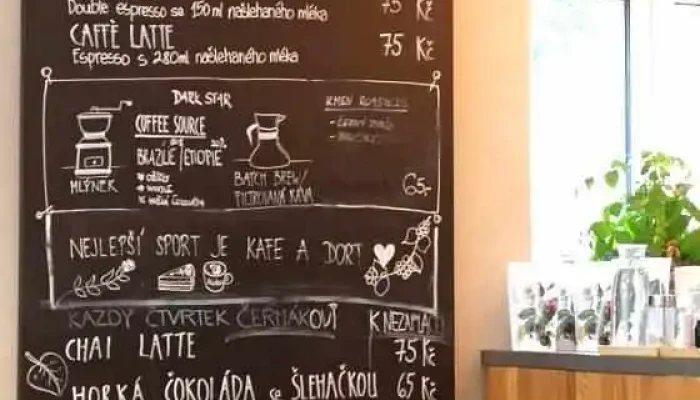 Double espresso se 150ml našlehaného mléka 75 Kč
CAFFÈ LATTE 75 Kč
Espresso s 280ml našlehaného mléka
DARK STAR
COFFEE SOURCE
BRAZÍLIE / ETIOPIE
MLÝNEK
BATCH BREW /
FILTROVANÁ KÁVA
65,-
NEJLEPŠÍ SPORT JE KAFE A DORT
KAŽDÝ ČTVRTEK ČERMÁKOVÝ
CHAI LATTE 75 Kč
HORKÁ ČOKOLÁDA se ŠLEHAČKOU 65 Kč